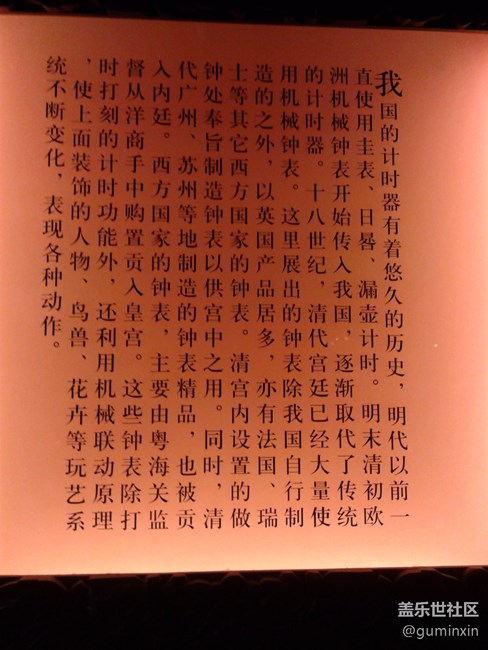 我国的计时器有着悠久的历史，明代以前一
直使用圭表、日晷、漏壶计时。明末清初欧
洲机械钟表开始传入我国，逐渐取代了传统
的计时器。十八世纪，清代宫廷已经大量使
用机械钟表。这里展出的钟表除我国自行制
造的之外，以英国产品居多，亦有法国、瑞
士等其它西方国家的钟表。清宫内设置的做
钟处奉旨制造钟表以供宫中之用。同时，清
代广州、苏州等地制造的钟表精品，也被贡
入内廷。西方国家的钟表，主要由粤海关监
督从洋商手中购置贡入皇宫。这些钟表除打
时打刻的计时功能外，还利用机械联动原理
，使上面装饰的人物、鸟兽、花卉等玩艺系
统不断变化，表现各种动作。
盖乐世社区
@guminxin